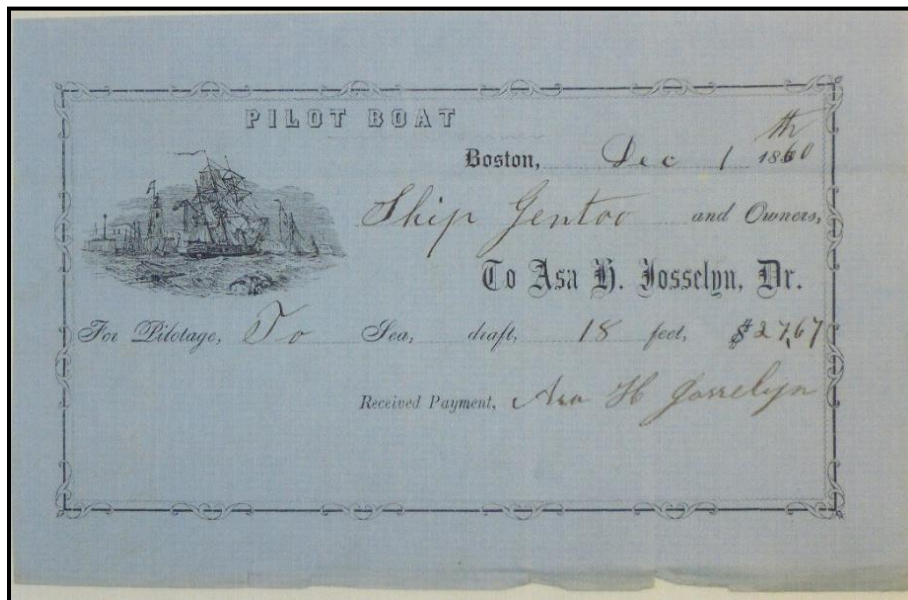 PILOT BOAT
Boston, Dec 1th 1860
Ship Gentoo and Owners,
To Asa H. Josselyn, Dr.
For Pilotage, To Sea, draft, 18 feet, $27,67
Received Payment, Asa H Josselyn